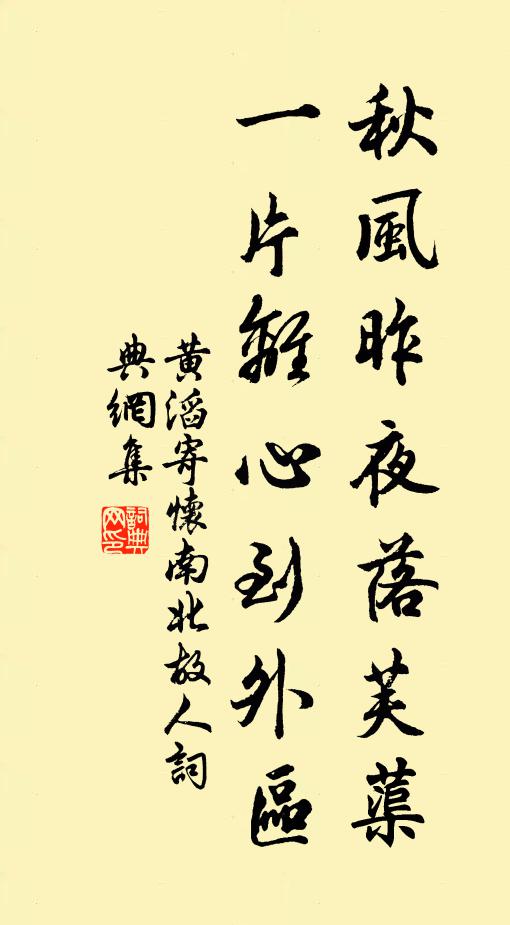 秋風昨夜落芙蕖
一片離心到外區
黃滔寄懷南北故人詞
典網集
詞典
网印